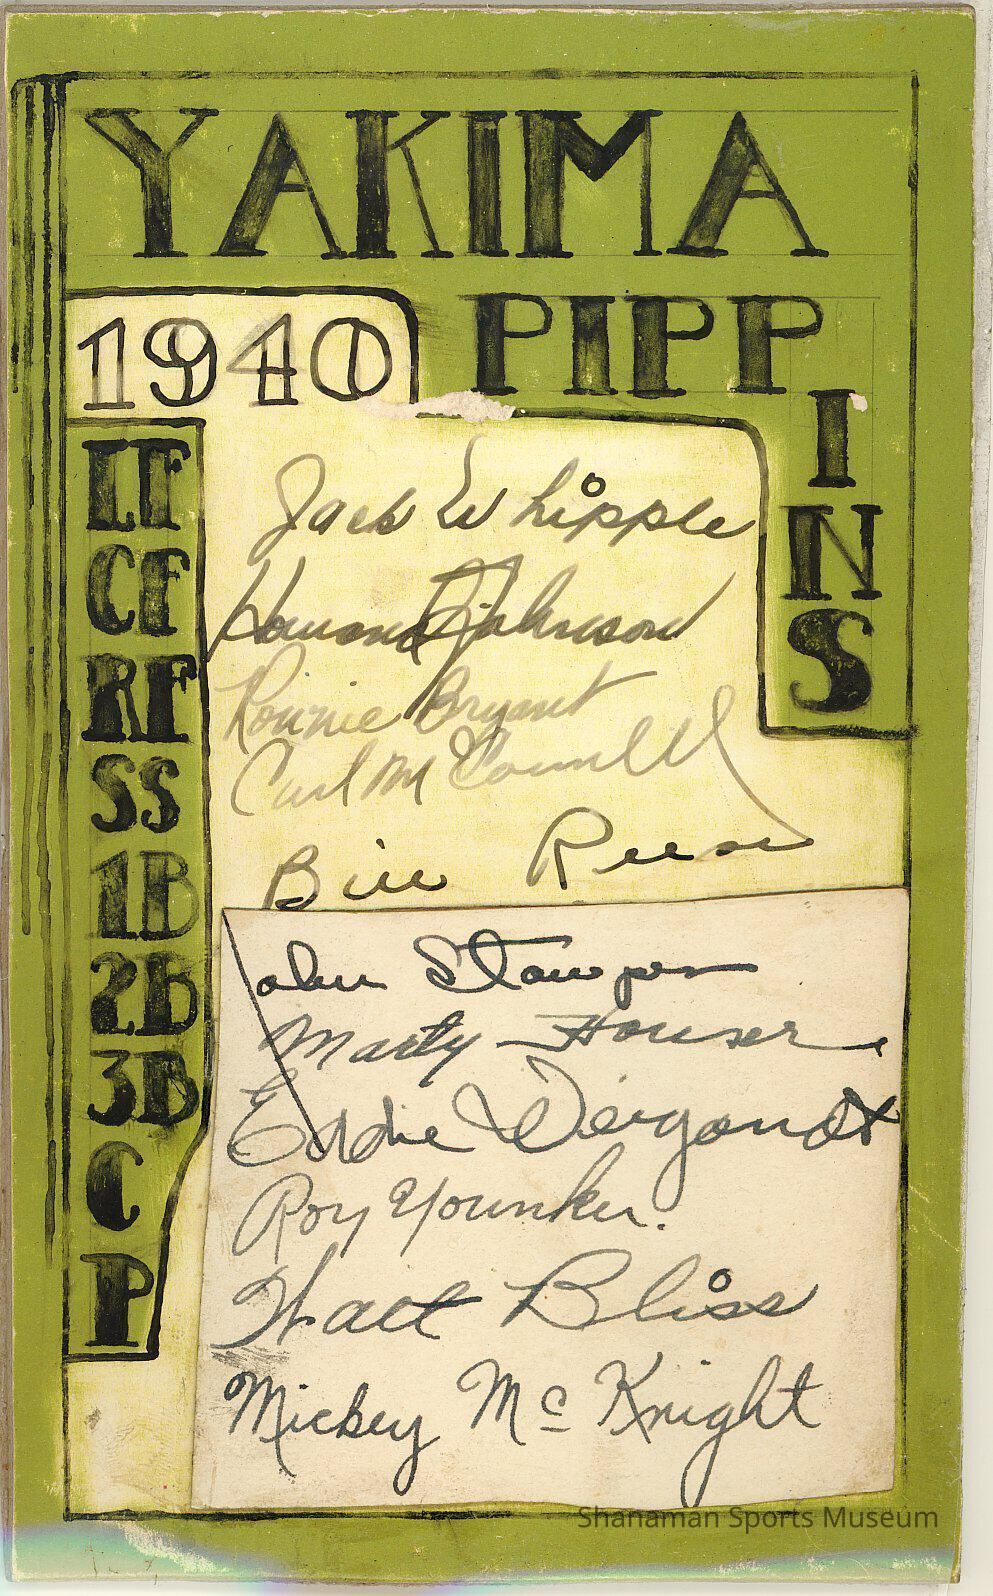 YAKIMA
PIPPINS
1940
LF
CF
RF
SS
1B
2B
3B
C
P
Jack Whipple
Johnson
Ronnie Bryant
Carl McConnell
Bill Reese
John Stamper
Marty Houser
Eddie
Roy Younker.
Walt Bliss
Mickey Mc Knight
Shanaman Sports Museum